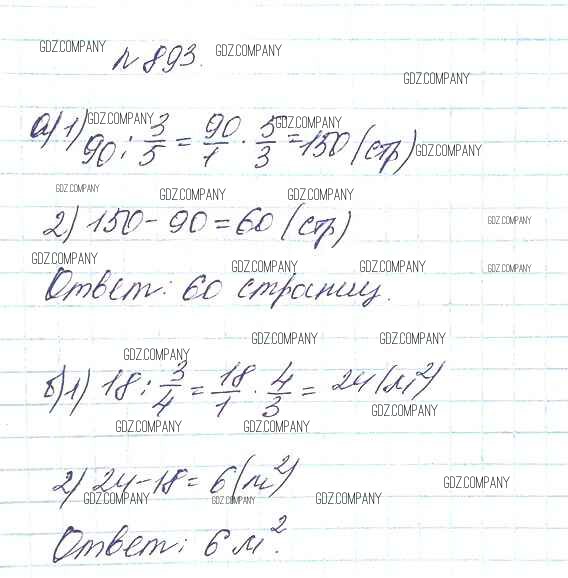 GDZ.COMPANY GDZ.COMPANY
№ 893.
GDZ.COMPANY
GDZ.COMPANY GDZ.COMPANY
а) 1) 90 : 3/5 = 90/1 · 5/3 = 150 (стр)
GDZ.COMPANY
GDZ.COMPANY GDZ.COMPANY GDZ.COMPANY
2) 150 - 90 = 60 (стр)
GDZ.COMPANY
GDZ.COMPANY GDZ.COMPANY GDZ.COMPANY GDZ.COMPANY
Ответ: 60 страниц.
GDZ.COMPANY GDZ.COMPANY
GDZ.COMPANY
б) 1) 18 : 3/4 = 18/1 · 4/3 = 24 (м²)
GDZ.COMPANY
GDZ.COMPANY GDZ.COMPANY
2) 24 - 18 = 6 (м²)
GDZ.COMPANY
GDZ.COMPANY GDZ.COMPANY GDZ.COMPANY
Ответ: 6 м².